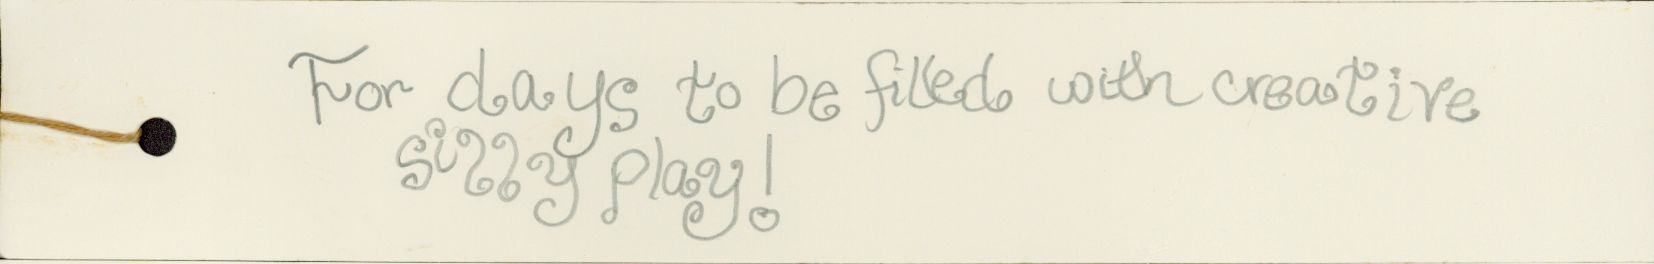 For days to be filled with creative
silly play!